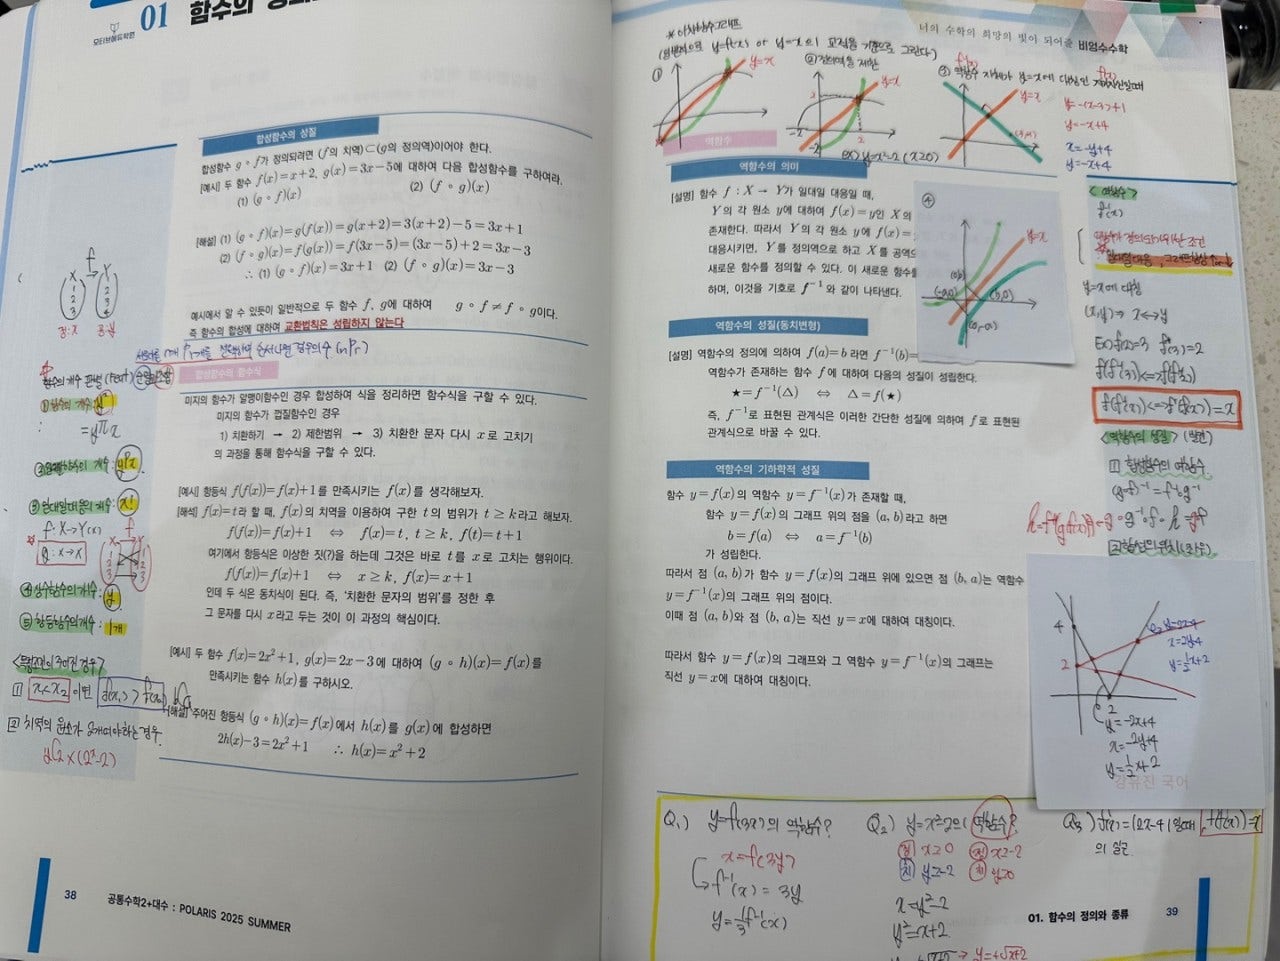 모티브에듀학원
01 함수의
합성함수의 성질
합성함수 g∘f가 정의되려면 (f의 치역)⊂(g의 정의역)이어야 한다.
[예시] 두 함수 f(x)=x+2, g(x)=3x-5에 대하여 다음 합성함수를 구하여라.
(1) (g∘f)(x) (2) (f∘g)(x)
[해설] (1) (g∘f)(x)=g(f(x))=g(x+2)=3(x+2)-5=3x+1
(2) (f∘g)(x)=f(g(x))=f(3x-5)=(3x-5)+2=3x-3
∴ (1) (g∘f)(x)=3x+1 (2) (f∘g)(x)=3x-3
예시에서 알 수 있듯이 일반적으로 두 함수 f, g에 대하여 g∘f≠f∘g이다.
즉 함수의 합성에 대하여 교환법칙은 성립하지 않는다
합성함수의 함수식
미지의 함수가 알맹이함수인 경우 합성하여 식을 정리하면 함수식을 구할 수 있다.
미지의 함수가 껍질함수인 경우
1) 치환하기 → 2) 제한범위 → 3) 치환한 문자 다시 x로 고치기
의 과정을 통해 함수식을 구할 수 있다.
[예시] 항등식 f(f(x))=f(x)+1를 만족시키는 f(x)를 생각해보자.
[해석] f(x)=t라 할 때, f(x)의 치역을 이용하여 구한 t의 범위가 t≥k라고 해보자.
f(f(x))=f(x)+1 ⇔ f(x)=t, t≥k, f(t)=t+1
여기에서 항등식은 이상한 짓(?)을 하는데 그것은 바로 t를 x로 고치는 행위이다.
f(f(x))=f(x)+1 ⇔ x≥k, f(x)=x+1
인데 두 식은 동치식이 된다. 즉, '치환한 문자의 범위'를 정한 후
그 문자를 다시 x라고 두는 것이 이 과정의 핵심이다.
[예시] 두 함수 f(x)=2x²+1, g(x)=2x-3에 대하여 (g∘h)(x)=f(x)를
만족시키는 함수 h(x)를 구하시오.
[해설] 주어진 항등식 (g∘h)(x)=f(x)에서 h(x)를 g(x)에 합성하면
2h(x)-3=2x²+1 ∴ h(x)=x²+2
f
X Y
1 2 3
정:X 공:Y
함수의 개수
① 함수의 개수: yˣ
=yΠx
yPx
③ 일대일대응의 개수: x!
f: X→Y(x)
g: x→x
④ 상수함수의 개수: y
⑤ 항등함수의 개수: 1개
② 치역의 원소가 2개여야하는 경우
yC2×(2ˣ-2)
38 공통수학2+대수 : POLARIS 2025 SUMMER
너의 수학의 희망의 빛이 되어줄 비엄수수학
① y=x
② 정의역을 제한 y=x
ex) y=x²-2 (x≥0)
y=x
y=-(x-3)+1
y=-x+4
x=-y+4
y=-x+4
역함수
역함수의 의미
[설명] 함수 f : X → Y가 일대일 대응일 때,
Y의 각 원소 y에 대하여 f(x)=y인 X의
존재한다. 따라서 Y의 각 원소 y에 f(x)=
대응시키면, Y를 정의역으로 하고 X를 공역으
새로운 함수를 정의할 수 있다. 이 새로운 함수를
하며, 이것을 기호로 f⁻¹와 같이 나타낸다.
④ y=x
역함수의 성질(동치변형)
[설명] 역함수의 정의에 의하여 f(a)=b라면 f⁻¹(b)=
역함수가 존재하는 함수 f에 대하여 다음의 성질이 성립한다.
★=f⁻¹(△) ⇔ △=f(★)
즉, f⁻¹로 표현된 관계식은 이러한 간단한 성질에 의하여 f로 표현된
관계식으로 바꿀 수 있다.
역함수의 기하학적 성질
함수 y=f(x)의 역함수 y=f⁻¹(x)가 존재할 때,
함수 y=f(x)의 그래프 위의 점을 (a, b)라고 하면
b=f(a) ⇔ a=f⁻¹(b)
가 성립한다.
따라서 점 (a, b)가 함수 y=f(x)의 그래프 위에 있으면 점 (b, a)는 역함수
y=f⁻¹(x)의 그래프 위의 점이다.
이때 점 (a, b)와 점 (b, a)는 직선 y=x에 대하여 대칭이다.
따라서 함수 y=f(x)의 그래프와 그 역함수 y=f⁻¹(x)의 그래프는
직선 y=x에 대하여 대칭이다.
<역함수>
f⁻¹(x)
y=x에 대칭
(x,y)⇒ x↔y
Ex) f(2)=3 f⁻¹(3)=2
<역함수의 성질>
① 합성함수의 역함수
(g∘f)⁻¹=f⁻¹∘g⁻¹
4
2
2
x=2y-4
y=½x+2
y=-2x+4
x=-2y+4
y=½x+2
강유진 국어
Q1) y=f(3x)의 역함수?
x=f(3y)
f⁻¹(x)=3y
y=⅓f⁻¹(x)
Q2) y=x²-2의 역함수?
정 x≥0 정 x≥-2
치 y≥-2 치 y≥0
x=y²-2
y²=x+2
y=+√x+2
Q3)
01. 함수의 정의와 종류 39